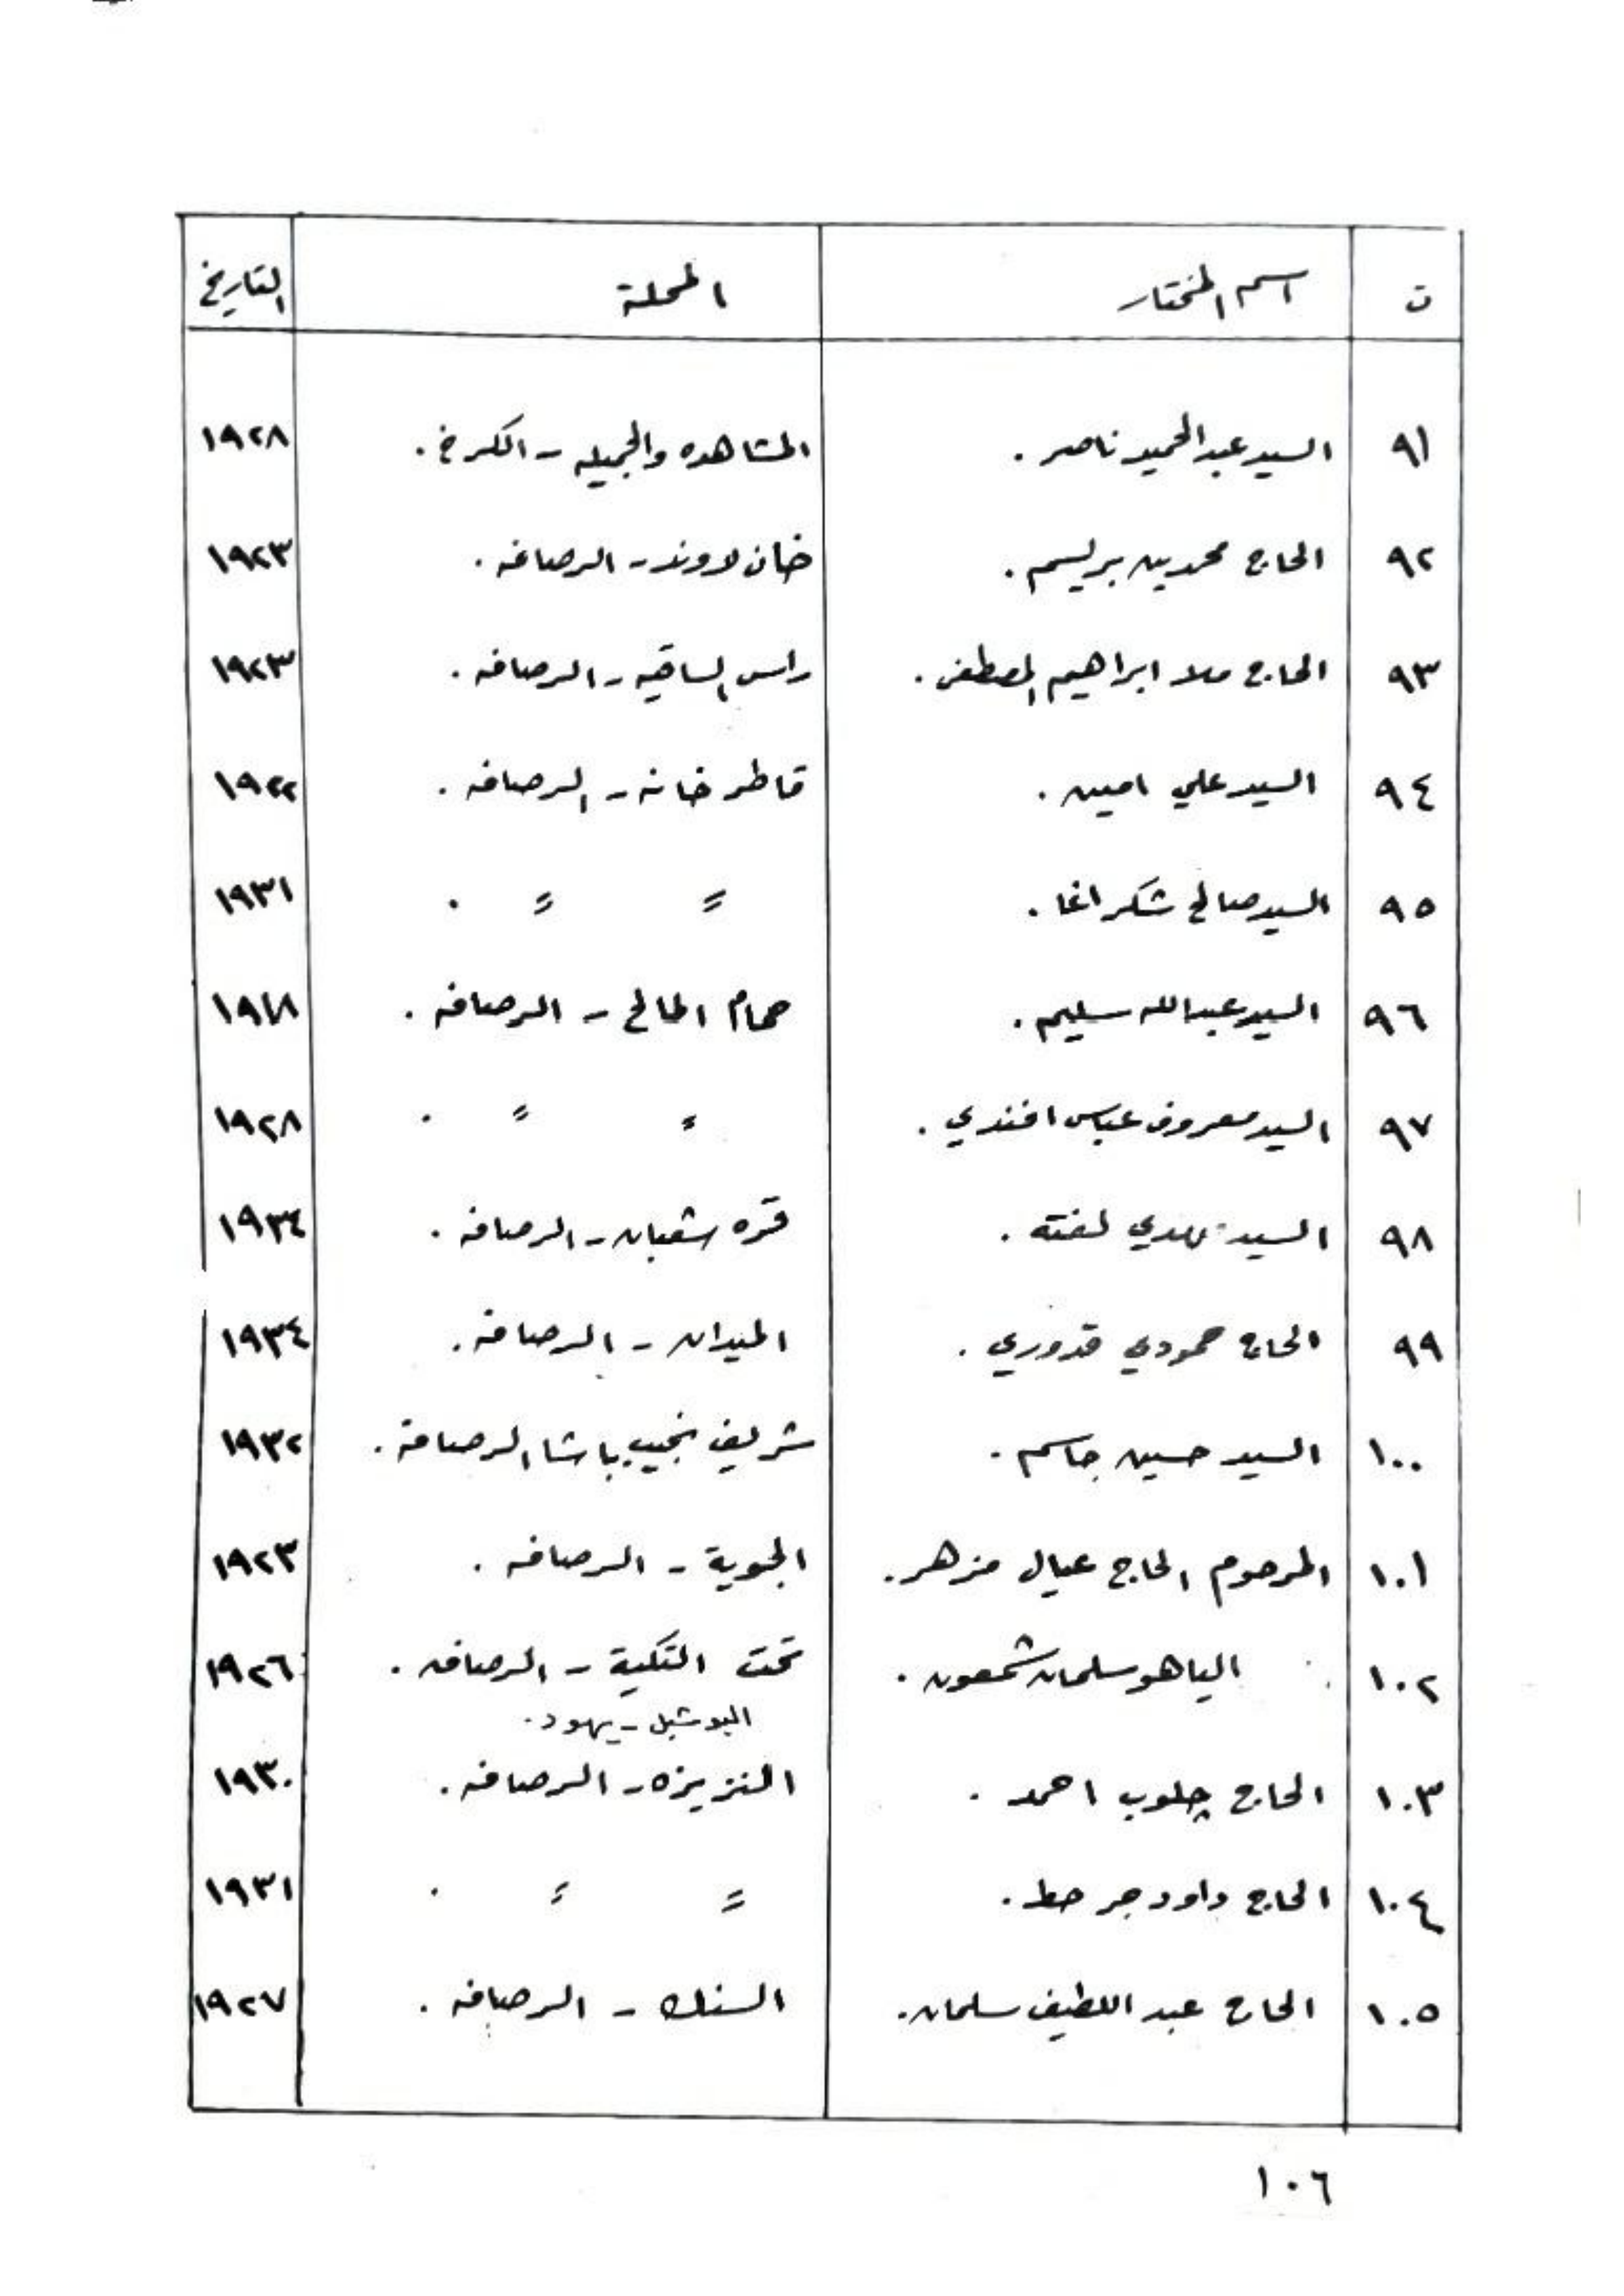 ت اسم المختار المحلة التاريخ
٩١ السيد عبد الحميد ناصر . المشاهده والجميله - الكرخ . ١٩٢٨
٩٢ الحاج محمد بن بريسم . خان لاوند - الرصافه . ١٩٢٣
٩٣ الحاج ملا ابراهيم المصطفى . راس الساقيه - الرصافه . ١٩٢٣
٩٤ السيد علي امين . قاطر خانه - الرصافه . ١٩٢٢
٩٥ السيد صالح شكر اغا . = = . ١٩٣١
٩٦ السيد عبد الله سليم . حمام المالح - الرصافه . ١٩١٨
٩٧ السيد معروف عباس افندي . = = . ١٩٢٨
٩٨ السيد مهدي لفته . قره شعبان - الرصافه . ١٩٣٤
٩٩ الحاج حمودي قدوري . الميدان - الرصافه . ١٩٣٤
١٠٠ السيد حسين جاسم . شريف نجيب باشا الرصافة . ١٩٣٢
١٠١ المرحوم الحاج عيال مزهر . الجوبة - الرصافه . ١٩٢٣
١٠٢ الياهو سلمان شمعون . تحت التكية - الرصافه . ١٩٢٦
البو شبل - يهود .
١٠٣ الحاج چلوب احمد . النزيزه - الرصافه . ١٩٣٠
١٠٤ الحاج داود . = = . ١٩٣١
١٠٥ الحاج عبد اللطيف سلمان . السنك - الرصافه . ١٩٢٧
١٠٦